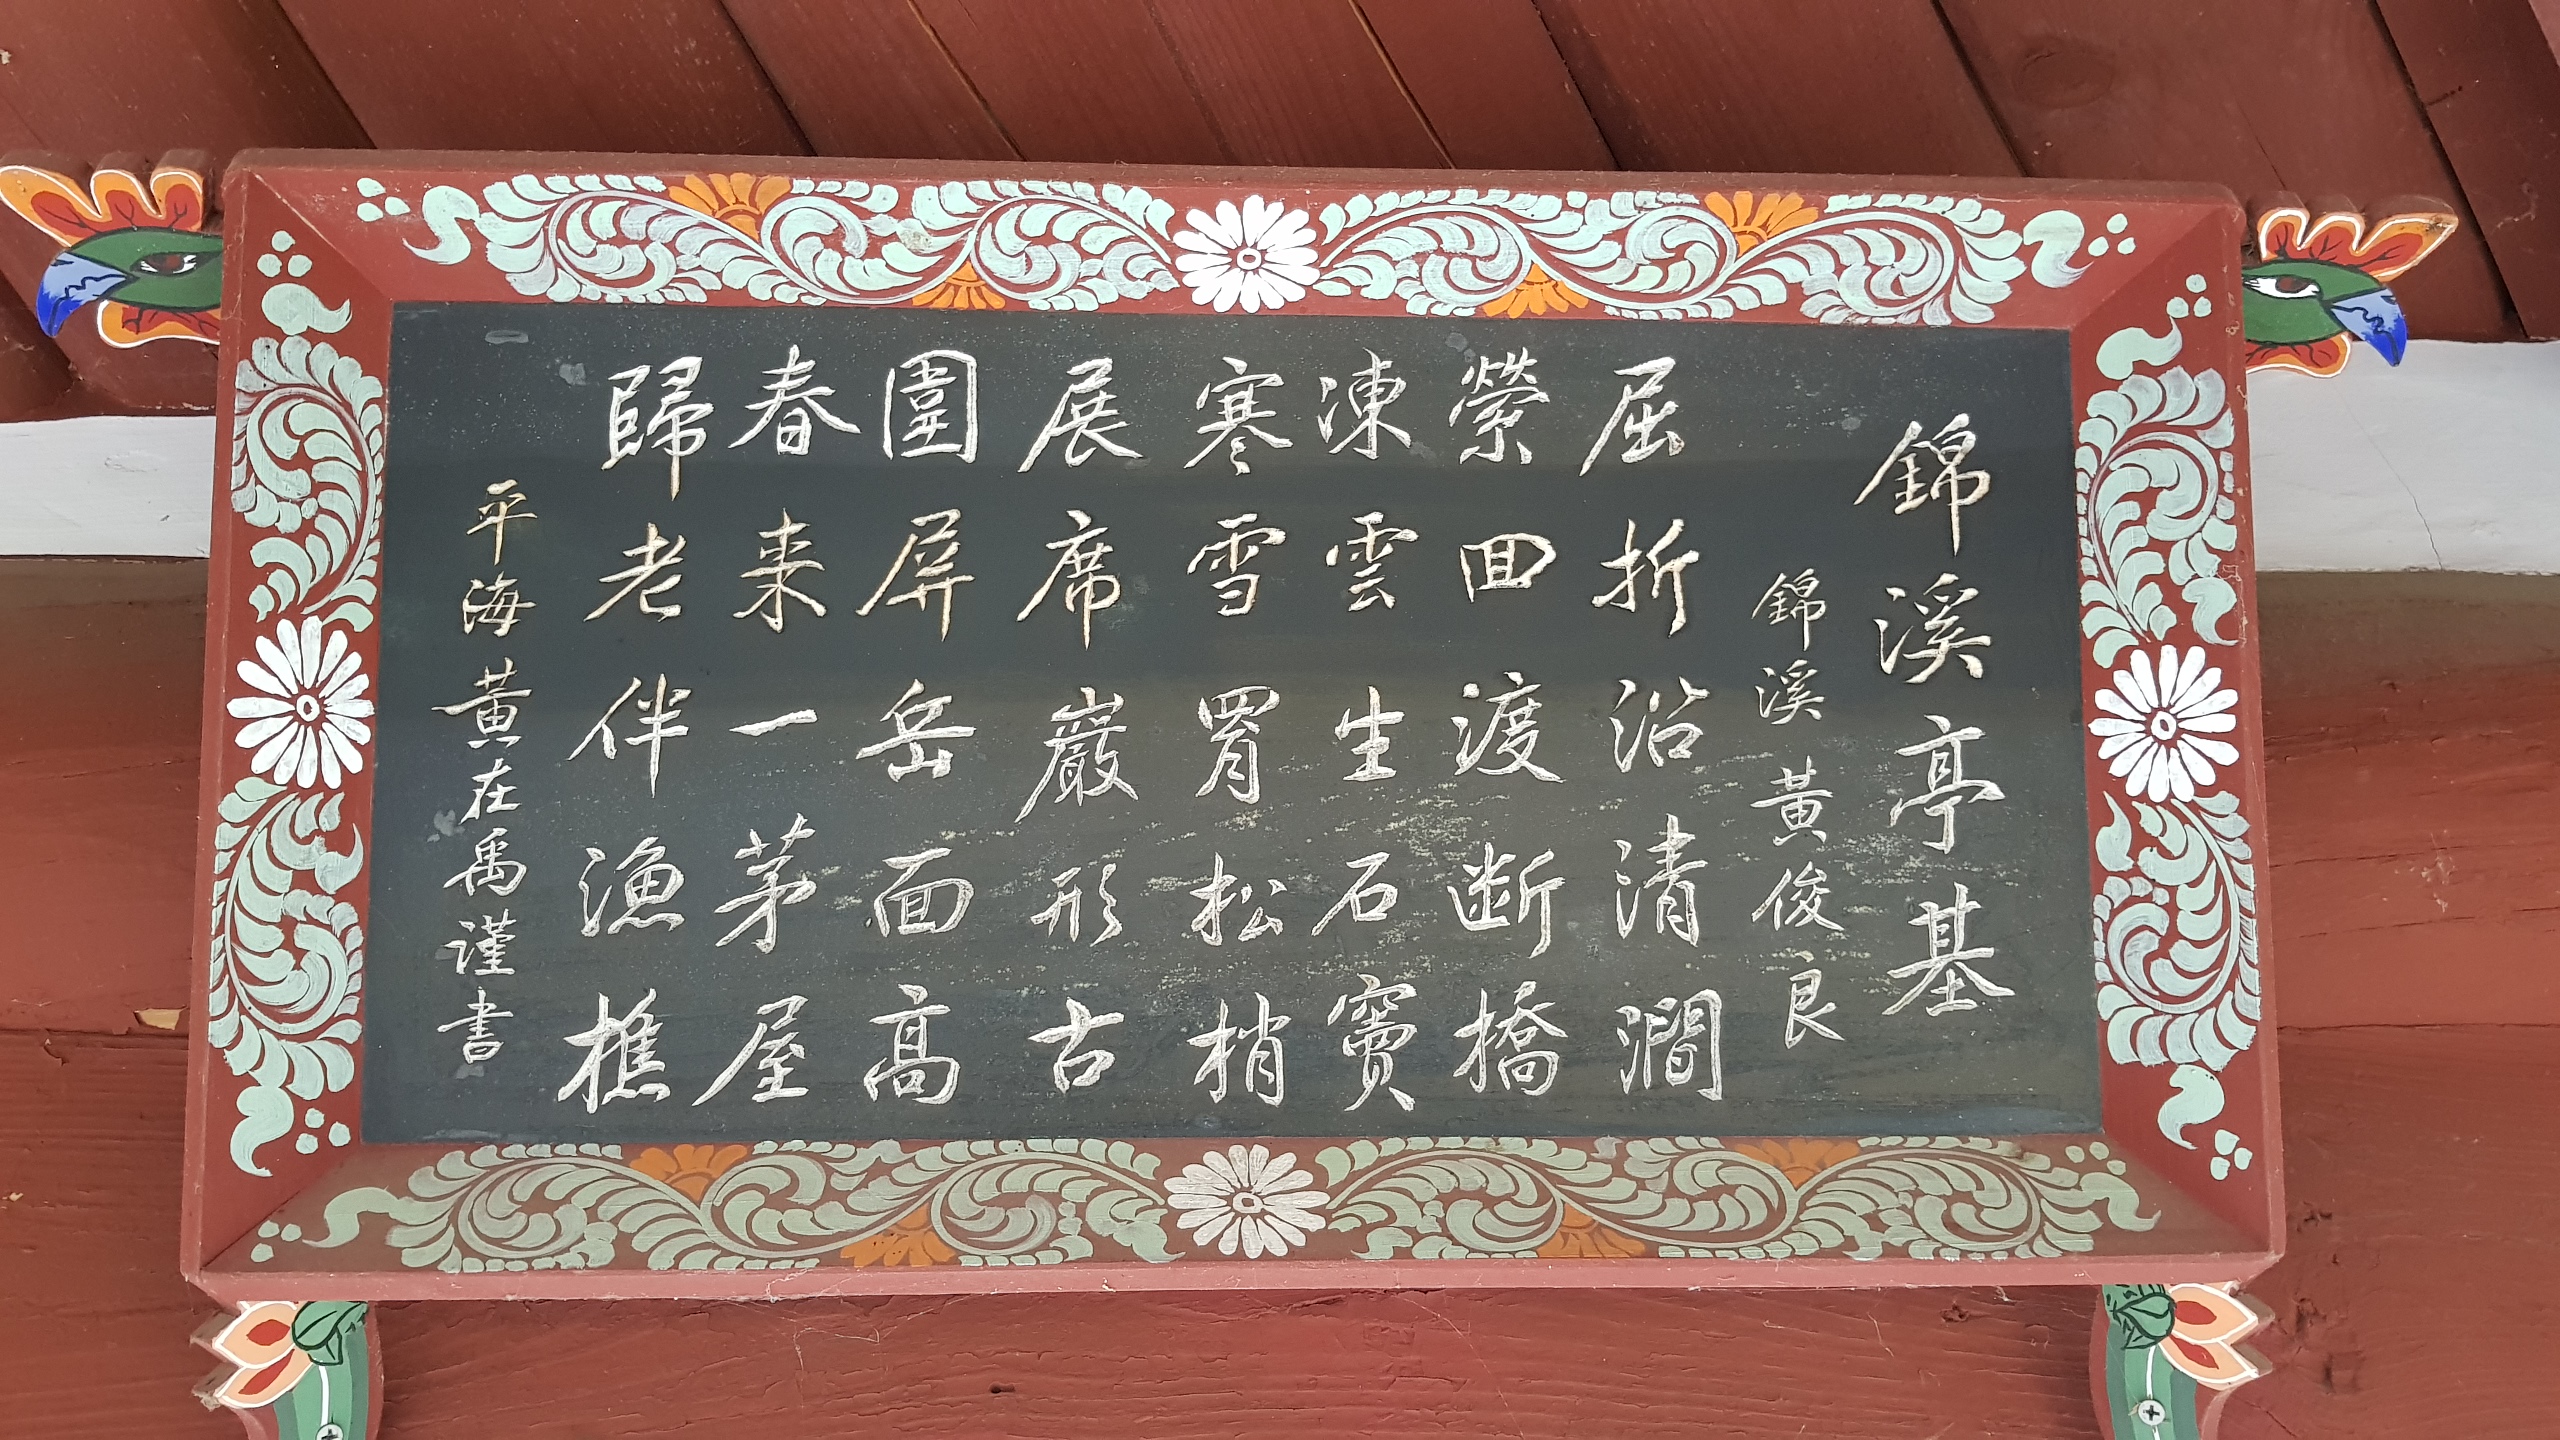 錦溪亭基
錦溪黃俊良
屈折沿清澗
縈回渡断橋
凍雲生石竇
寒雪罥松梢
展席巖形古
圍屏岳面高
春来一茅屋
歸老伴漁樵
平海黃在禹謹書